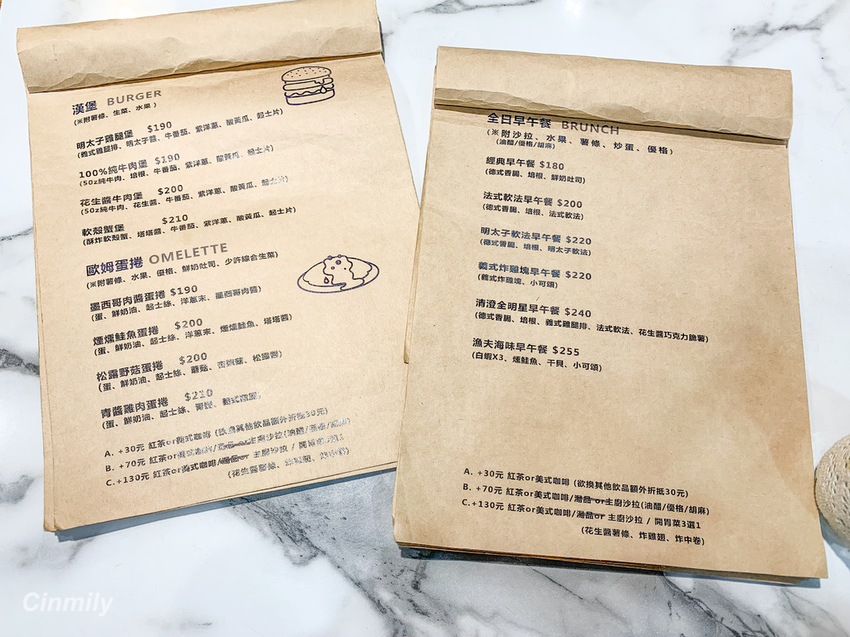 漢堡 BURGER
(※附薯條、生菜、水果)
明太子雞腿堡 $190
(義式雞腿排、明太子醬、牛番茄、紫洋蔥、酸黃瓜、起士片)
100%純牛肉堡 $190
(5oz純牛肉、培根、牛番茄、紫洋蔥、酸黃瓜、起士片)
花生醬牛肉堡 $200
(5oz純牛肉、花生醬、牛番茄、紫洋蔥、酸黃瓜、起士片)
軟殼蟹堡 $210
(酥炸軟殼蟹、塔塔醬、牛番茄、紫洋蔥、酸黃瓜、起士片)
歐姆蛋捲 OMELETTE
(※附薯條、水果、優格、鮮奶吐司、少許綜合生菜)
墨西哥肉醬蛋捲 $190
(蛋、鮮奶油、起士絲、洋蔥末、墨西哥肉醬)
燻燻鮭魚蛋捲 $200
(蛋、鮮奶油、起士絲、洋蔥末、燻燻鮭魚、塔塔醬)
松露野菇蛋捲 $200
(蛋、鮮奶油、起士絲、蘑菇、杏鮑菇、松露醬)
青醬雞肉蛋捲 $210
(蛋、鮮奶油、起士絲、
A. +30元 紅茶or美式咖啡 (欲換其他飲品額外折抵30元)
B. +70元 紅茶or美式咖啡/湯品or主廚沙拉(油醋/優格/胡麻)
C.+130元 紅茶or美式咖啡/湯品or 主廚沙拉 / 開胃菜3選1
(花生醬薯條、炸雞翅、炸中卷)
全日早午餐 BRUNCH
(※附沙拉、水果、薯條、炒蛋、優格)
(油醋/優格/胡麻)
經典早午餐 $180
(德式香腸、培根、鮮奶吐司)
法式軟法早午餐 $200
(德式香腸、培根、法式軟法)
明太子軟法早午餐 $220
(德式香腸、培根、明太子軟法)
義式炸雞塊早午餐 $220
(義式炸雞塊、小可頌)
清澄全明星早午餐 $240
(德式香腸、培根、義式雞腿排、法式軟法、花生醬巧克力脆薯)
漁夫海味早午餐 $255
(白蝦X3、燻鮭魚、干貝、小可頌)
A. +30元 紅茶or美式咖啡 (欲換其他飲品額外折抵30元)
B. +70元 紅茶or美式咖啡/湯品 or主廚沙拉(油醋/優格/胡麻)
C.+130元 紅茶or美式咖啡/湯品or 主廚沙拉 / 開胃菜3選1
(花生醬薯條、炸雞翅、炸中卷)
Cinmily